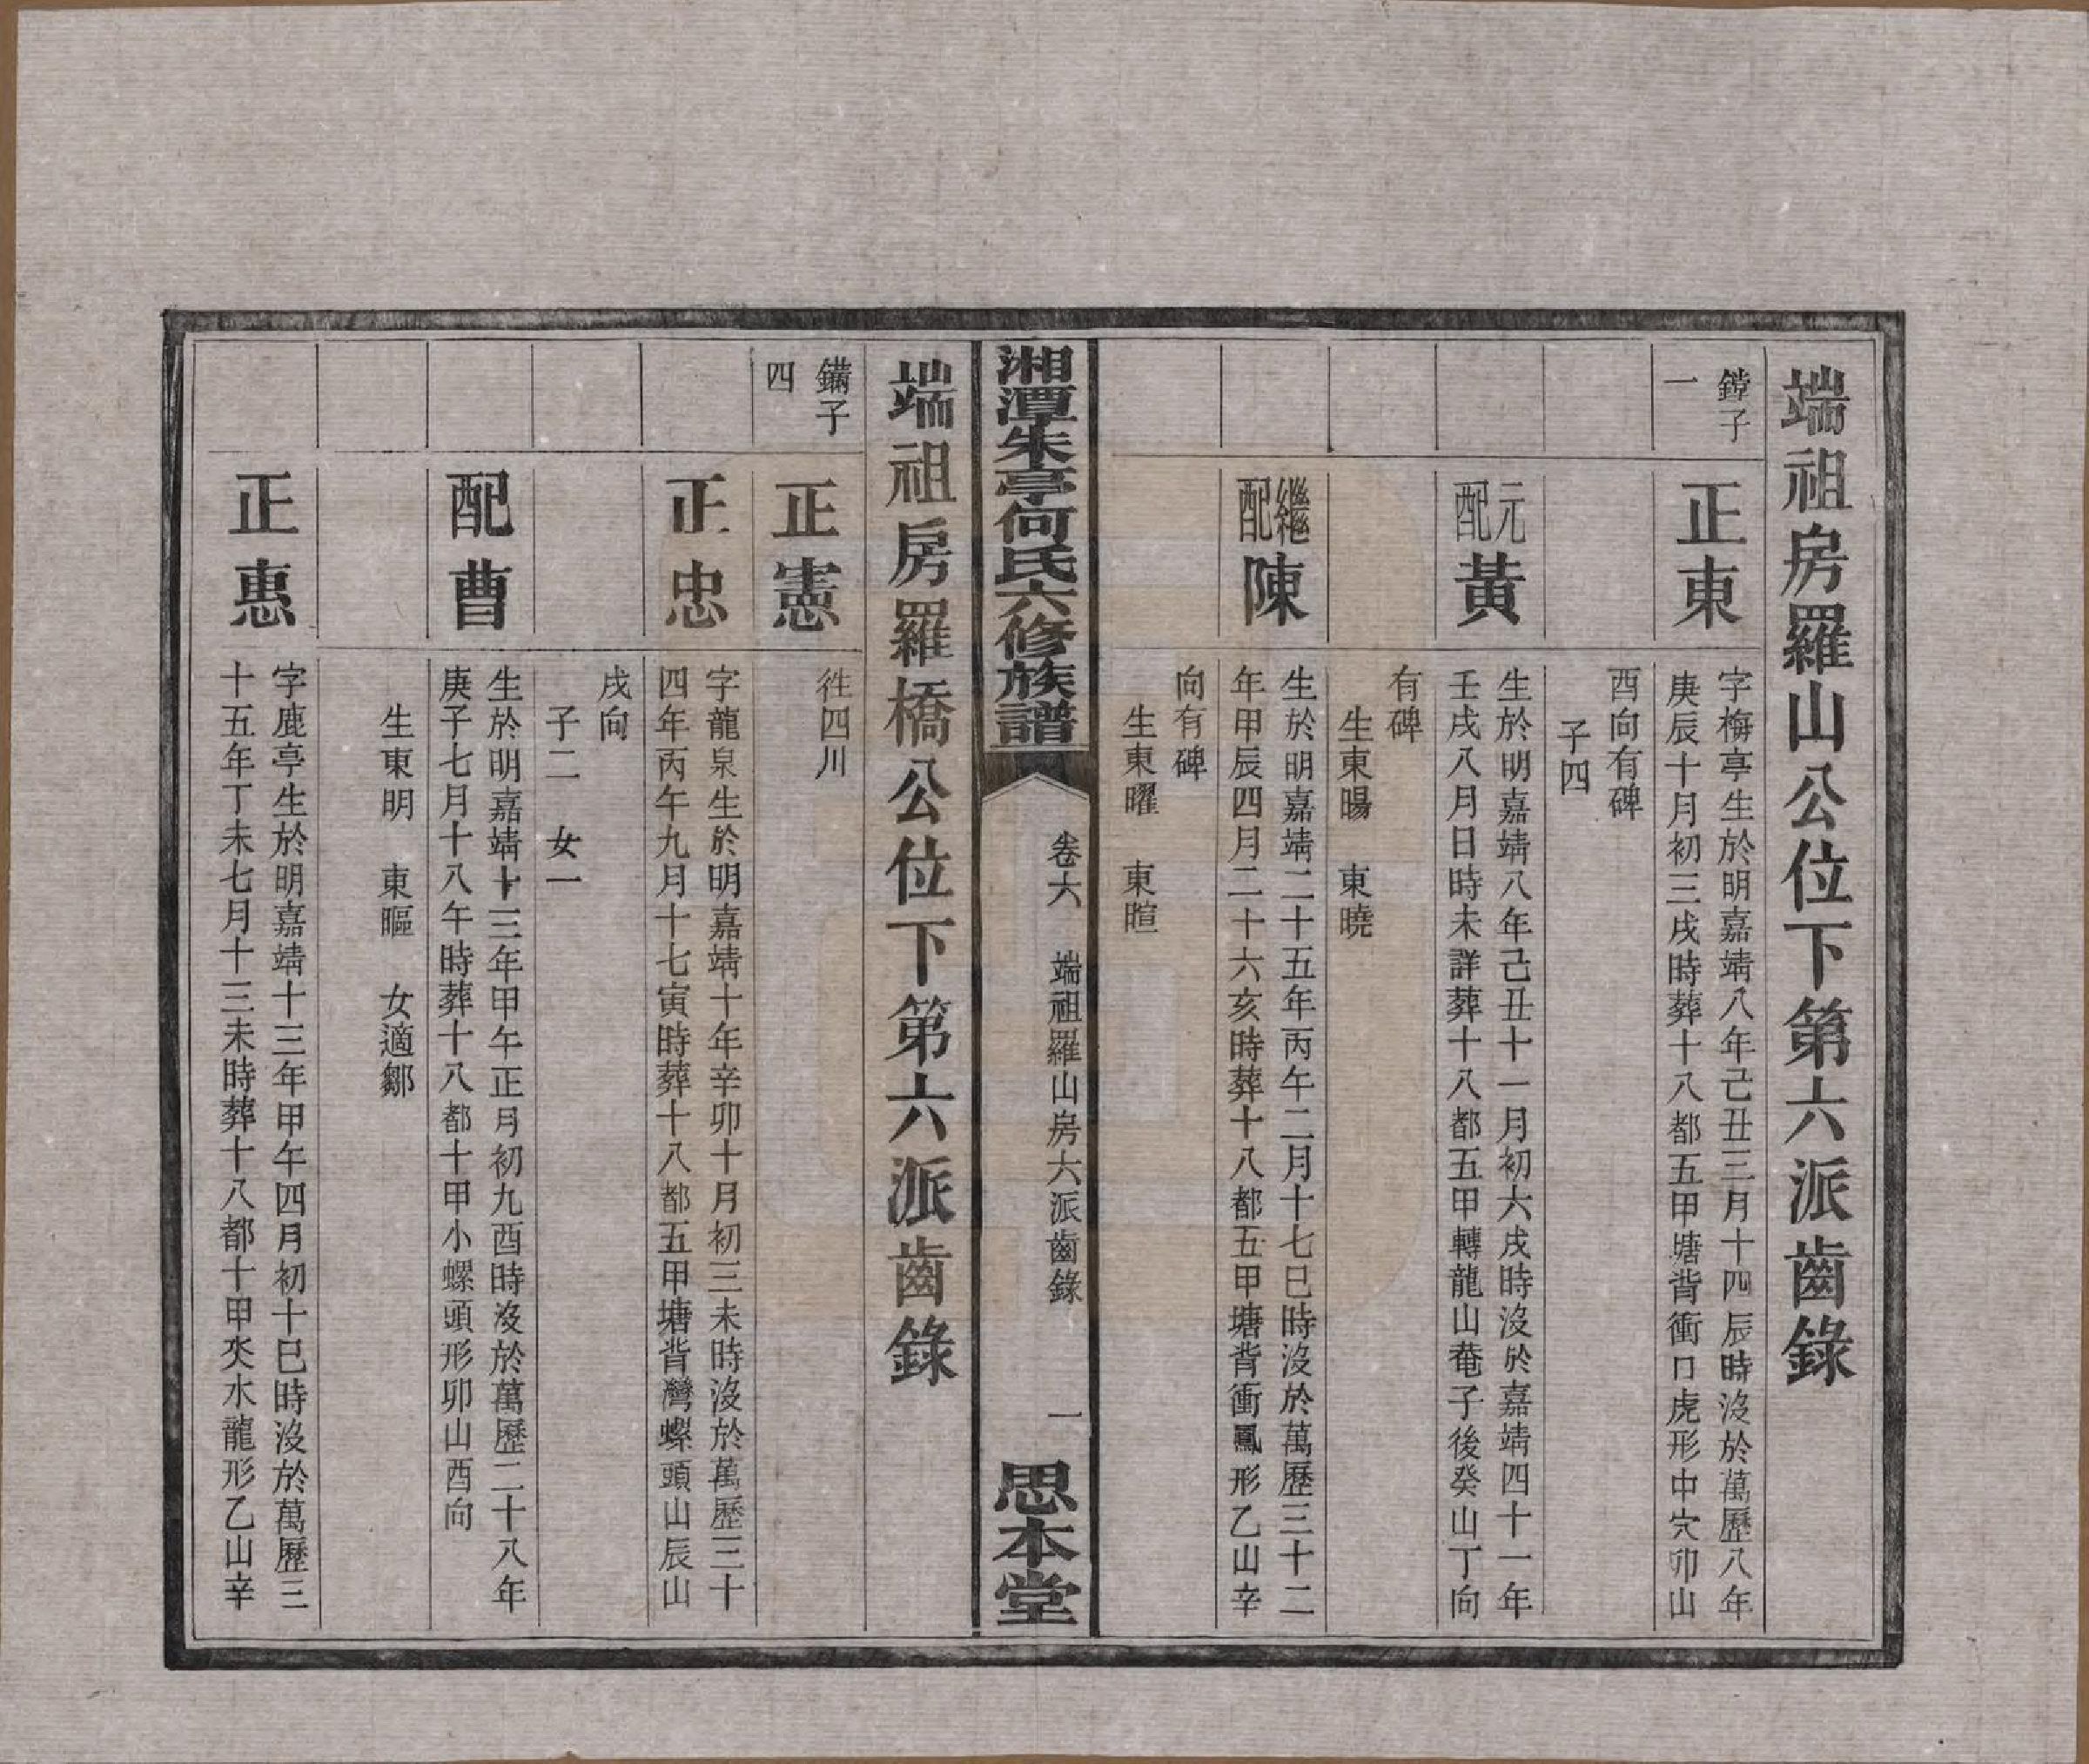 端祖房羅山公位下第六派齒錄
鏜子
一
正東
字梅亭生於明嘉靖八年己丑三月十四辰時沒於萬歷八年
庚辰十月初三戌時葬十八都五甲塘背衝口虎形中穴卯山
酉向有碑
子四
元配
黃
生於明嘉靖八年己丑十一月初六戌時沒於嘉靖四十一年
壬戌八月日時未詳葬十八都五甲轉龍山菴子後癸山丁向
有碑
生東暘　東曉
繼配
陳
生於明嘉靖二十五年丙午二月十七巳時沒於萬歷三十二
年甲辰四月二十六亥時葬十八都五甲塘背衝鳳形乙山辛
向有碑
生東曜　東暄
湘潭朱亭何氏六修族譜
卷六　端祖羅山房六派齒錄　一
思本堂
端祖房羅橋公位下第六派齒錄
鏋子
四
正憲
徃四川
正忠
字龍泉生於明嘉靖十年辛卯十月初三未時沒於萬歷三十
四年丙午九月十七寅時葬十八都五甲塘背灣螺頭山辰山
戌向
子二　女一
配曹
生於明嘉靖十三年甲午正月初九酉時沒於萬歷二十八年
庚子七月十八午時葬十八都十甲小螺頭形卯山酉向
生東明　東曬　女適鄒
正惠
字鹿亭生於明嘉靖十三年甲午四月初十巳時沒於萬歷三
十五年丁未七月十三未時葬十八都十甲夾水龍形乙山辛